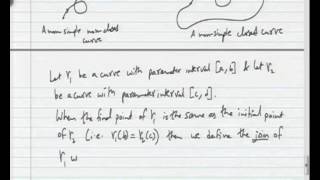 A non simple non closed
curve
A non simple closed curve
Let γ₁ be a curve with parameter interval [a,b] & let γ₂
be a curve with parameter interval [c,d].
When the final point of γ₁ is the same as the initial point
of γ₂ (i.e. γ₁(b)=γ₂(c)) then we define the join of
γ₁ w